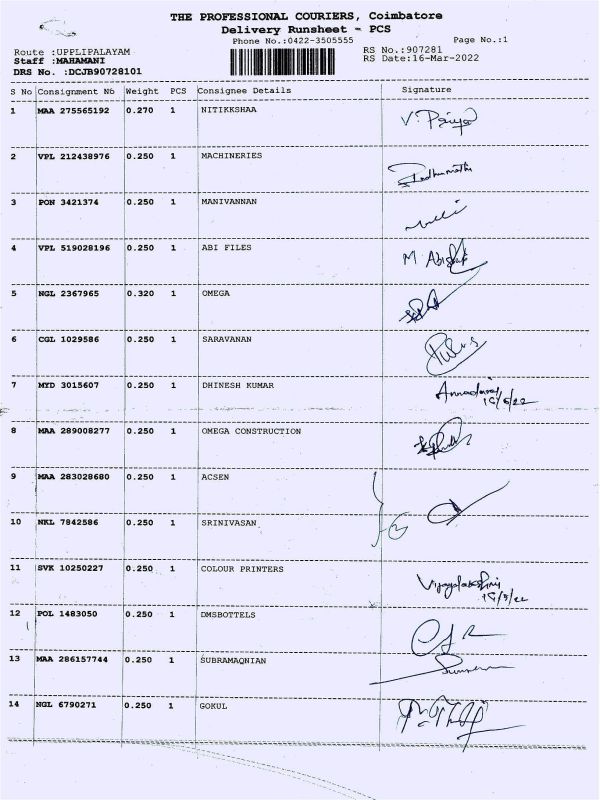 THE PROFESSIONAL COURIERS, Coimbatore
Delivery Runsheet - PCS
Phone No.:0422-3505555 Page No.:1
Route :UPPLIPALAYAM RS No.:907281
Staff :MAHAMANI RS Date:16-Mar-2022
DRS No. :DCJB90728101
S No Consignment Nb Weight PCS Consignee Details Signature
1 MAA 275565192 0.270 1 NITIKKSHAA V. Priya
2 VPL 212438976 0.250 1 MACHINERIES
3 PON 3421374 0.250 1 MANIVANNAN
4 VPL 519028196 0.250 1 ABI FILES
5 NGL 2367965 0.320 1 OMEGA
6 CGL 1029586 0.250 1 SARAVANAN
7 MYD 3015607 0.250 1 DHINESH KUMAR
8 MAA 289008277 0.250 1 OMEGA CONSTRUCTION
9 MAA 283028680 0.250 1 ACSEN
10 NKL 7842586 0.250 1 SRINIVASAN
11 SVK 10250227 0.250 1 COLOUR PRINTERS
12 POL 1483050 0.250 1 DMSBOTTELS
13 MAA 286157744 0.250 1 SUBRAMAQNIAN
14 NGL 6790271 0.250 1 GOKUL